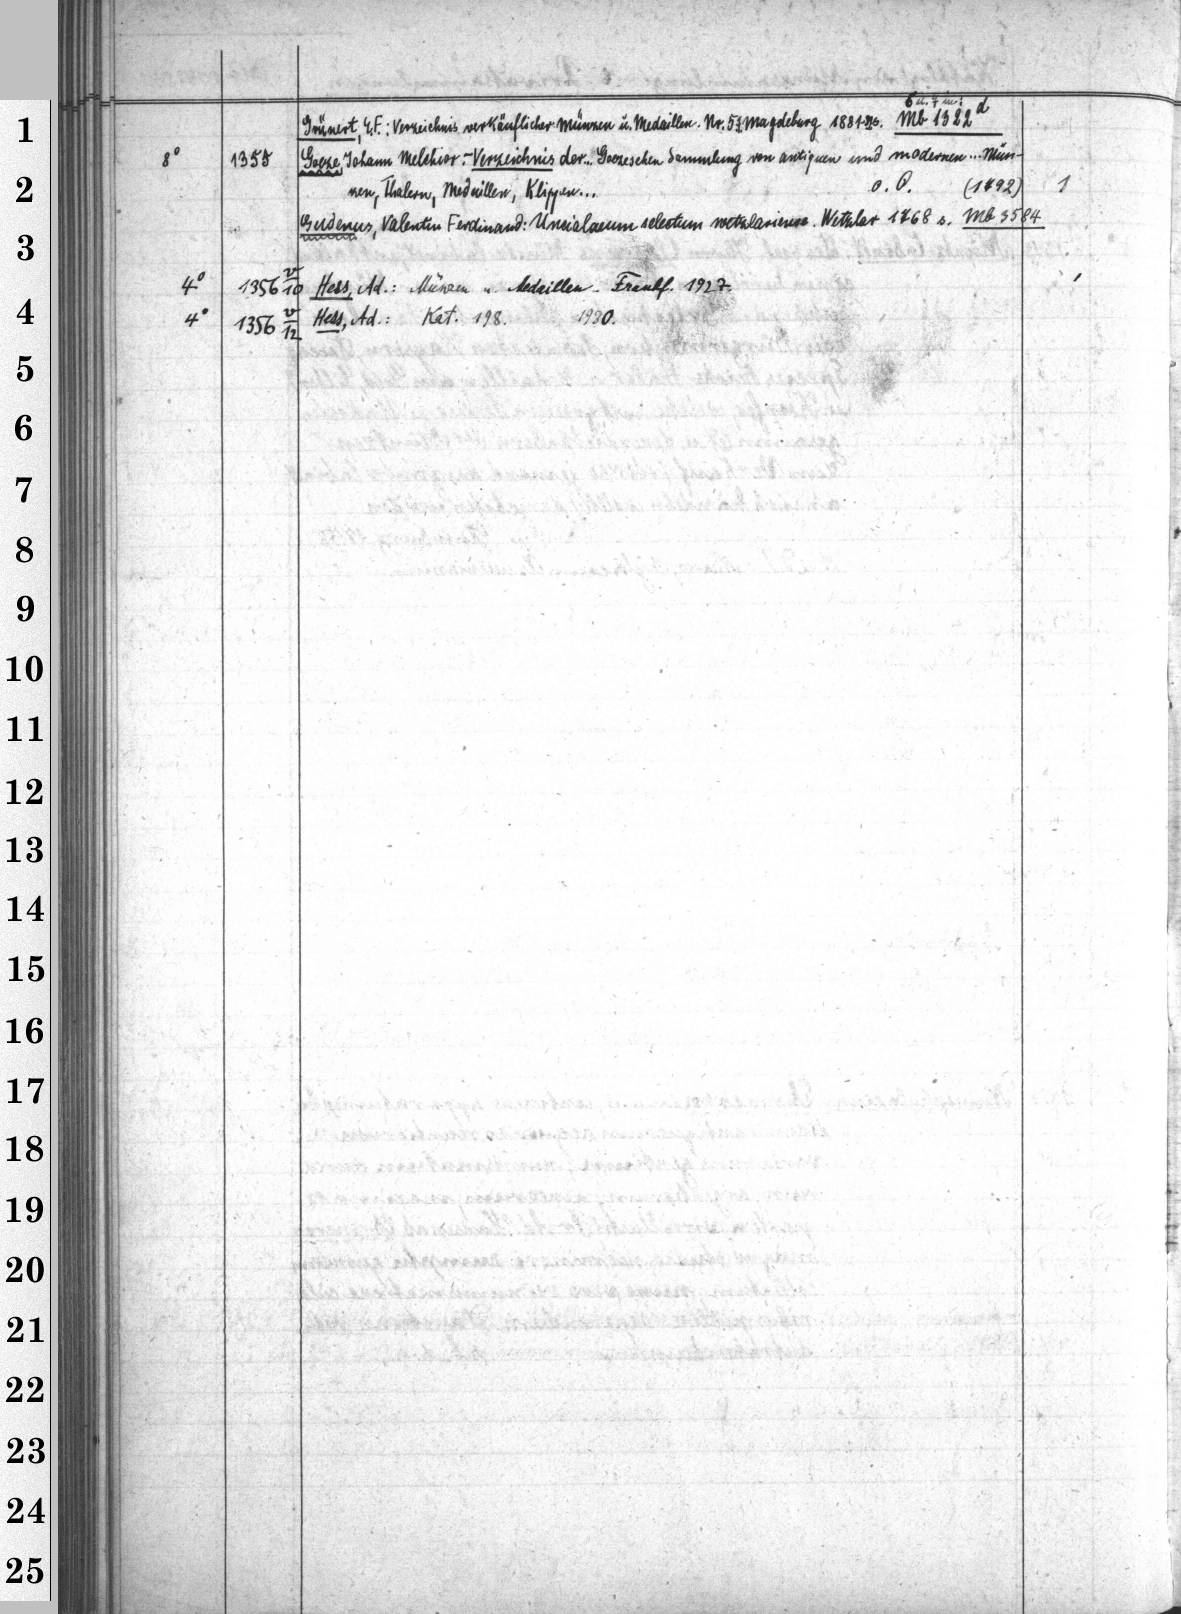 6 u. 7 in:
Grünert, E.F.: Verzeichnis verkäuflicher Münzen u. Medaillen. Nr. Magdeburg 1881 Mb 1322 d
8° 1355 Goeze, Johann Melchior: Verzeichnis der... Goezeschen Sammlung von antiquen und modernen... Mün-
zen, Thalern, Medaillen, Klippen... o. O. (1792) 1
Gudenus, Valentin Ferdinand: Uncialaeum selectum wetzlariense. Wetzlar 1768 s. Mb 3584
4° 1356 v/10 Hess, Ad.: Münzen u. Medaillen. Frankf. 1927.
4° 1356 v/12 Hess, Ad.: Kat. 198. 1930.
1
2
3
4
5
6
7
8
9
10
11
12
13
14
15
16
17
18
19
20
21
22
23
24
25